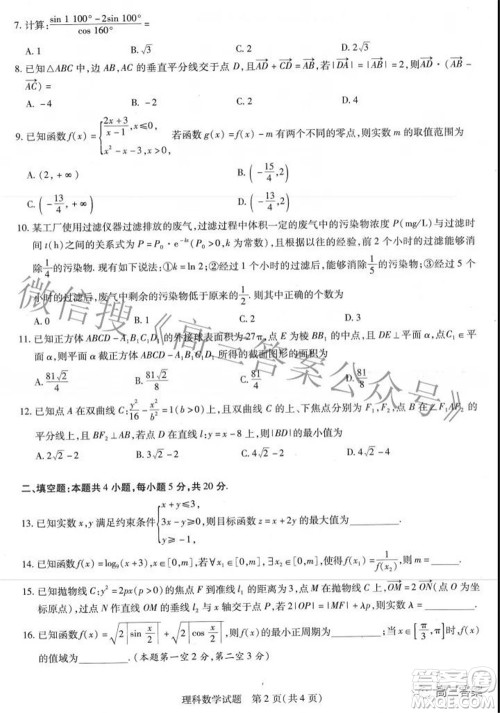 7. 计算:(sin 1 100°-2sin 100°)/cos 160°=
A. 1 B. 2√3 C. 2 D. 2√3
8. 已知△ABC中,边AB,AC的垂直平分线交于点D,且AD+CD=AB,若|DA|=|AB|=2,则DA·(AB-
AC)=
A. -4 B. -2 C. 2 D. 4
9. 已知函数f(x)={(2x+3)/(x-1),x≤0 x²-x-3,x>0 若函数g(x)=f(x)-m有两个不同的零点,则实数m的取值范围为
A. (2,+∞) B. (-15/4,2)
C. (-13/4,+∞) D. (-13/4,2)
10. 某工厂使用过滤仪器过滤排放的废气,过滤过程中体积一定的废气中的污染物浓度P(mg/L)与过滤时
间t(h)之间的关系式为P=P₀·e^(-kt)(P₀,k均为正常数).若前2个小时的过滤能够消
除1/4的污染物,则以下说法:①k=ln 2;②经过4个小时的过滤后,能够消除1/5的污染物;③经过5个
小时的过滤后,污染物的浓度低于原来的1/2.说法正确的个数为
A. 0 B. 1 C. 2 D. 3
11. 已知正方体ABCD-A₁B₁C₁D₁的外接球表面积为27π,点E为棱BB₁的中点,且DE⊥平面α,点C₁∈平
面α,则平面α截正方体ABCD-A₁B₁C₁D₁所得的截面图形的面积为
A. 81√2/4 B. 81√2/8 C. 81/4 D. 81/8
12. 已知点A在双曲线C:y²/16-x²/b²=1(b>0)上,上、下焦点分别为F₁,F₂,点B在∠F₁AF₂的
平分线上,且BF₂⊥AB,点D在直线l:y=x-8上,则|BD|的最小值为
A. 2√2-2 B. 4√2-4 C. 4√2-2 D. 2√2-1
二、填空题:本题共4小题,每小题5分,共20分.
13. 已知实数x,y满足约束条件{x+y≤3, 3x-y≥0, y≥0, 则目标函数z=x+2y的最大值为
14. 已知函数f(x)=log₄(x+3),x∈[0,m],若∀x₁∈[0,m],∃x₂∈[0,m],使得f(x₁)=1/f(x₂),则m=
15. 已知抛物线C:y²=2px(p>0)的焦点F到准线l的距离为3,点M在抛物线C上,OM=2ON(点O为坐
标原点),过点N作直线OM的垂线与x轴交于点P,若2|OP|=|MF|+λp,则实数λ=
16. 已知函数f(x)=√(2|sin x/2|)+√(2|cos x/2|),则f(x)的最小正周期为 ;当x∈[π/3,π]时,f(x)
的值域为 .(本题第一空2分,第二空3分)
理科数学试题 第2页(共4页)
微信搜《高三答案公众号》
高三答案